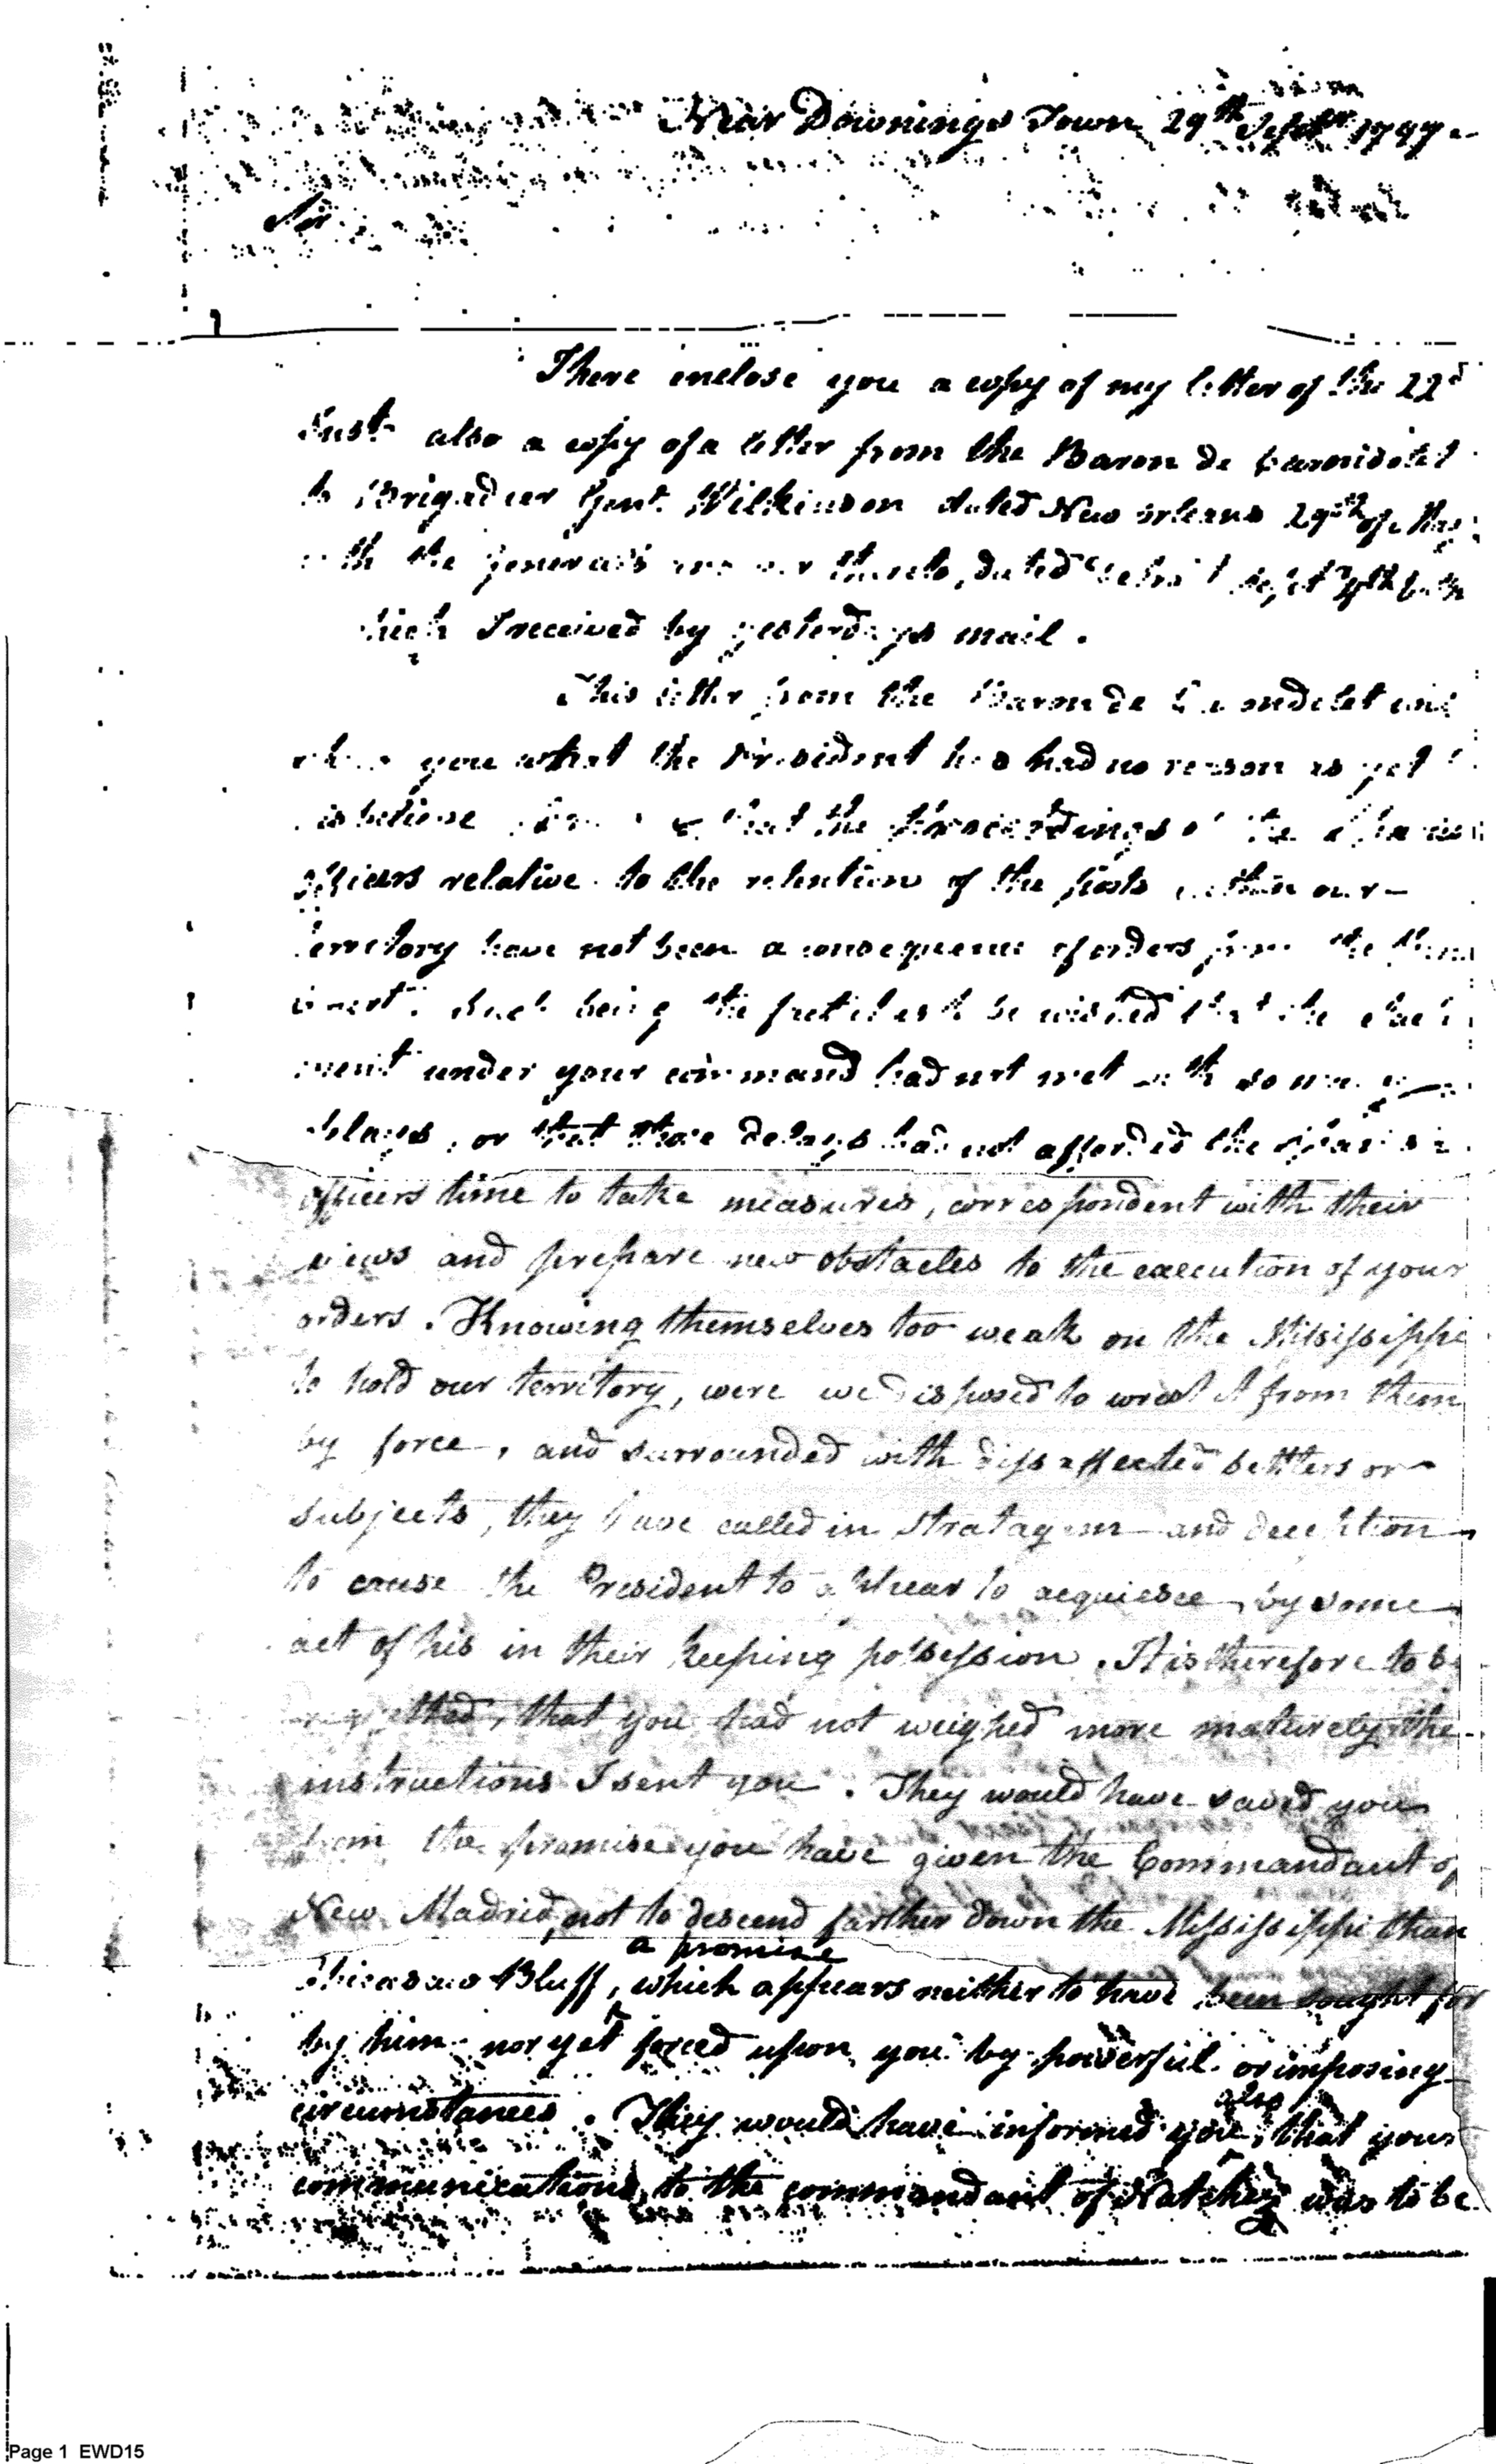 Near Downings Town 29th Sept. 1797
Sir
I here enclose you a copy of my letter of the 22d
inst also a copy of a letter from the Baron de Carondelet
to Brigadier Genl. Wilkinson dated New orleans 29th of May
with the generals answer thereto, dated Sept 4th both
which I received by yesterdays mail.
This letter from the Baron de Carondelet will
shew you what the President has had no reason as yet
to believe that the proceedings of the
officers relative to the retention of the posts within our
territory have not been a consequence of orders from the
Such being the fact it is to be wished that the
ment under your command had not met with so many
delays, or that those delays had not afforded the Spanish
officers time to take measures, correspondent with their
views and prepare new obstacles to the execution of your
orders. Knowing themselves too weak on the Missisippi
to hold our territory, were we disposed to wrest it from them
by force, and surrounded with dissaffected settlers or
subjects, they have called in stratagem and deception
to cause the President to appear to acquiesce, by some
act of his in their keeping possession. It is therefore to be
regretted, that you had not weighed more maturely the
instructions I sent you. They would have saved you
from the promise you have given the Commandant of
New Madrid, not to descend farther down the Mississippi than
a promise
Chicasaw Bluff, which appears neither to have been sought for
by him nor yet forced upon you by powerful or imposing
circumstances. They would have informed you also, that your
communications to the commandant of Natchez was to be
Page 1 EWD15